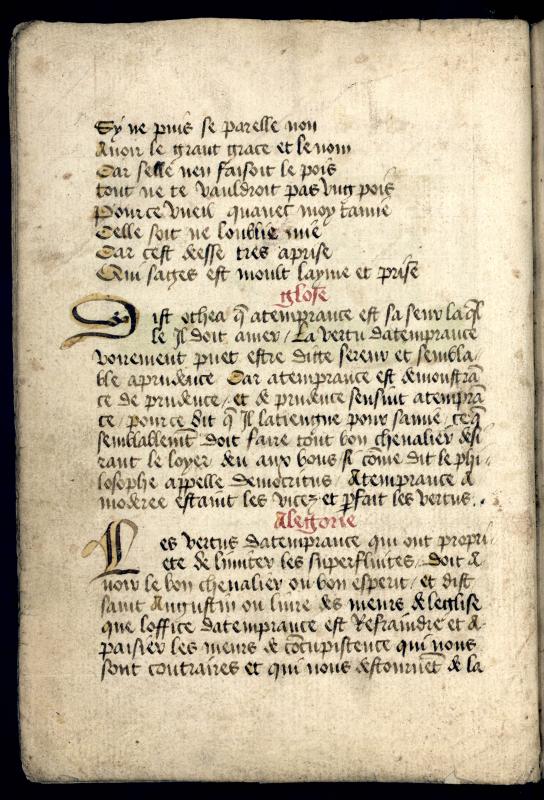 Sy ne puis se parelle non
Auoir le grant grace et le nom
Car selle nen faisoit le pois
tout ne te vauldroit pas vng pois
Pource vueil quauec moy tamie
Celle soit ne loublie mie
Car cest deesse tres aprise
Qui sages est moult layme et prise
glose
Dist othea q̄ atemprance est sa seur laq̄l
le Il doit amer / La vertu datemprance
voirement puet estre ditte sereur et sembla/
ble aprudence Car atemprance est demonstrā
ce de prudence / et de prudence sensuit atemprā
ce / pource dit q̄ Il latiengne pour samie / ce q̄
semblablemēt doit faire tout bon cheualier desi
rant le loyer / deu aux bons / si cōme dit le phi/
losophe appelle democritus / Atemprance a
moderee estaint les vicez et pfait les vertus ..
Alegorie
Les vertus datemprance qui ont propri/
ete de limiter les superfluites / doit a
uoir le bon cheualier ou bon esperit / et dist
saint Augustin ou liure des meurs de leglise
que loffice datemprance est Refraindre et a
paisier les meurs de cōcupistence qui nous
sont contraires et qui nous destournēt de la